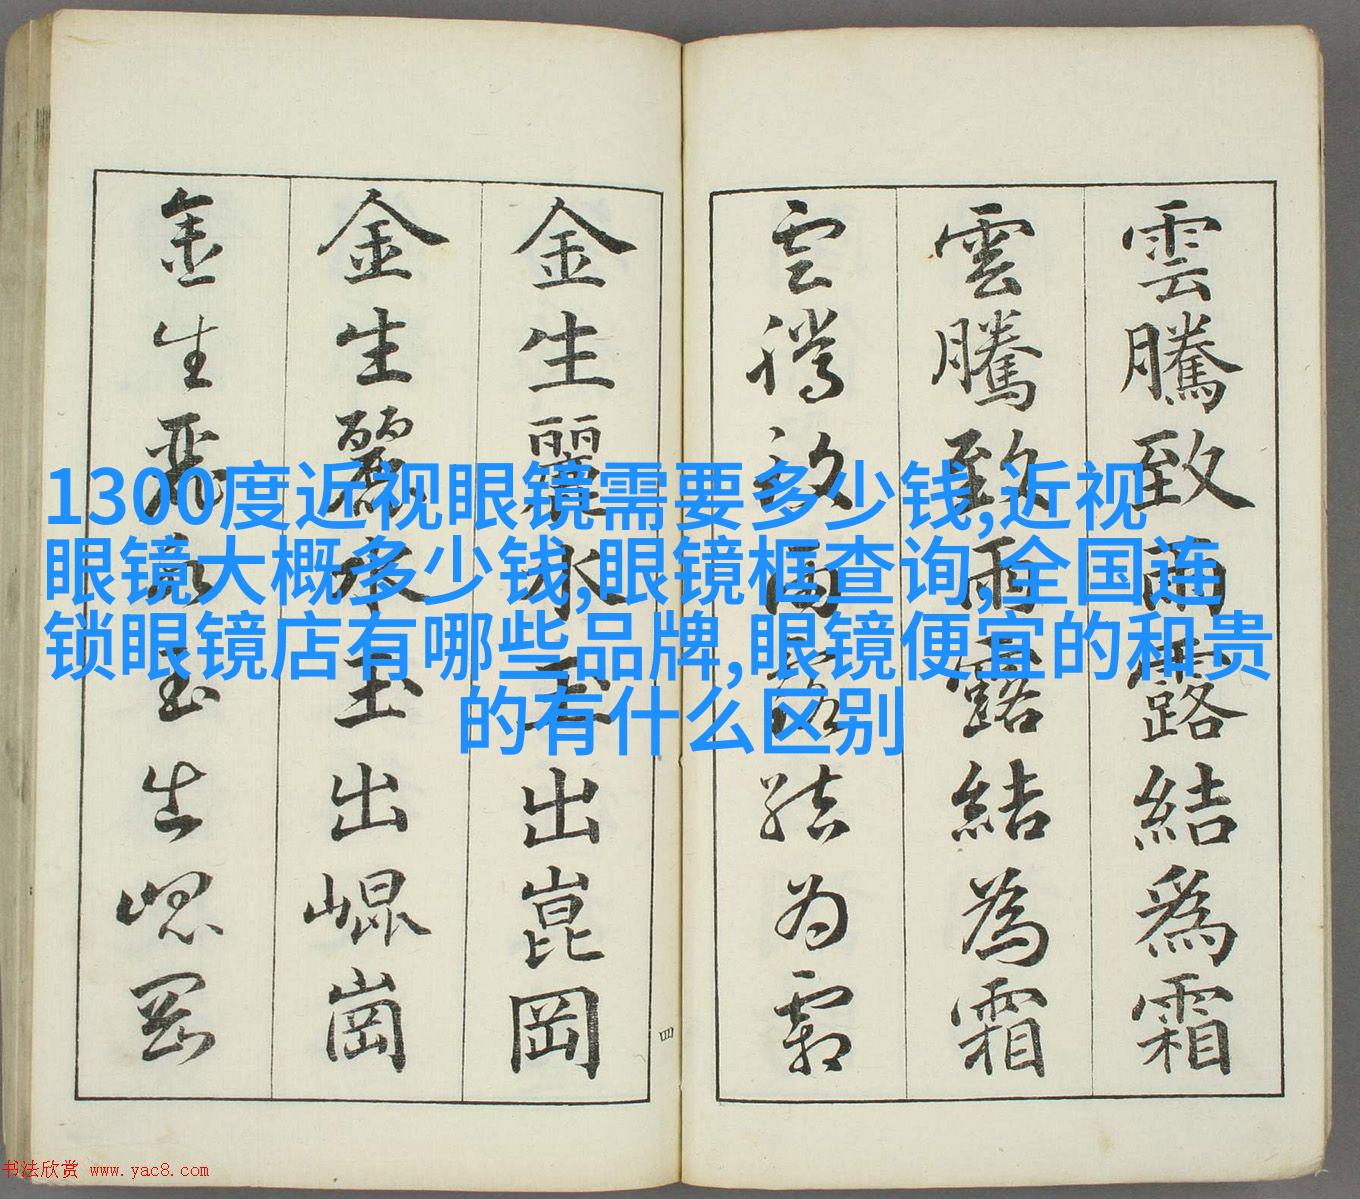 雲騰致雨露結爲霜
雲騰致雨露結為霜
雲騰致雨露結为霜
金生麗水玉出崑岡
金生麗水玉出崐崗
金生麗水玉出崐岡
四
1300度近视眼镜需要多少钱,近视
眼镜大概多少钱,眼镜框查询,全国连
锁眼镜店有哪些品牌,眼镜便宜的和贵
的有什么区别
书法欣赏 www.yac8.com